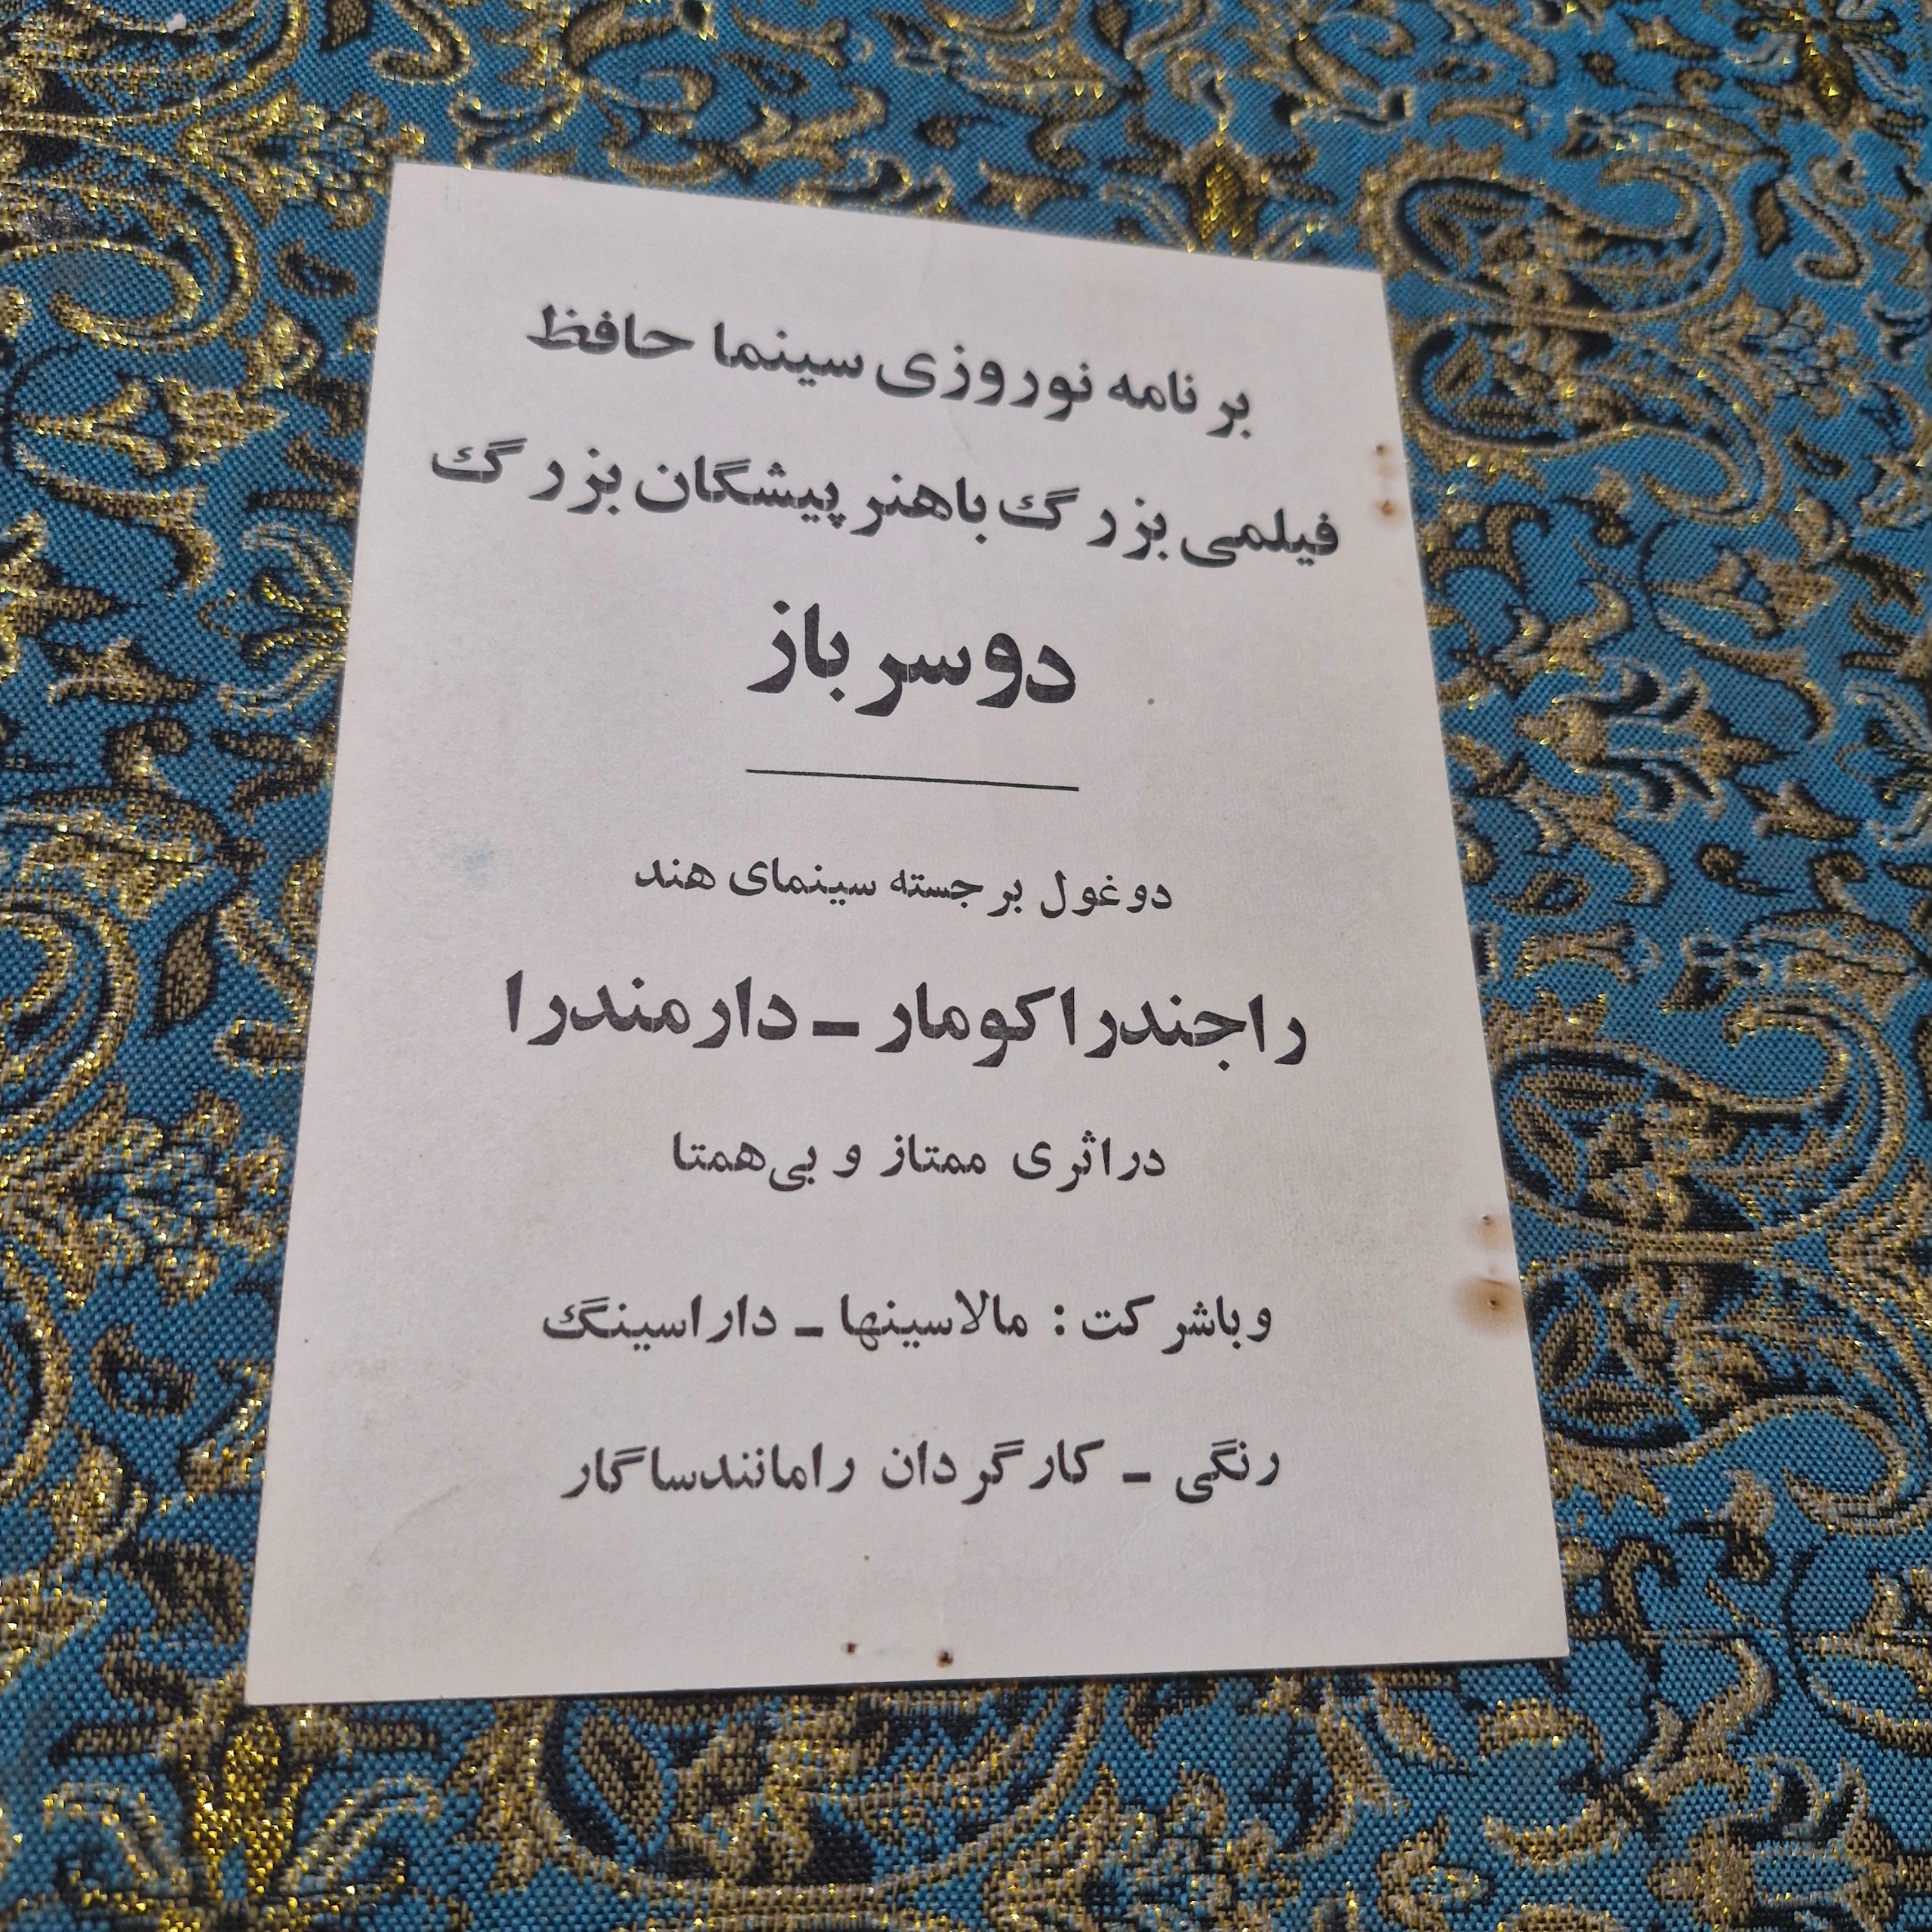 برنامه نوروزی سینما حافظ
فیلمی بزرگ باهنرپیشگان بزرگ
دوسرباز
دوغول برجسته سینمای هند
راجندراکومار ـ دارمندرا
دراثری ممتاز و بی‌همتا
وباشرکت : مالاسینها ـ داراسینگ
رنگی ـ کارگردان رامانندساگار